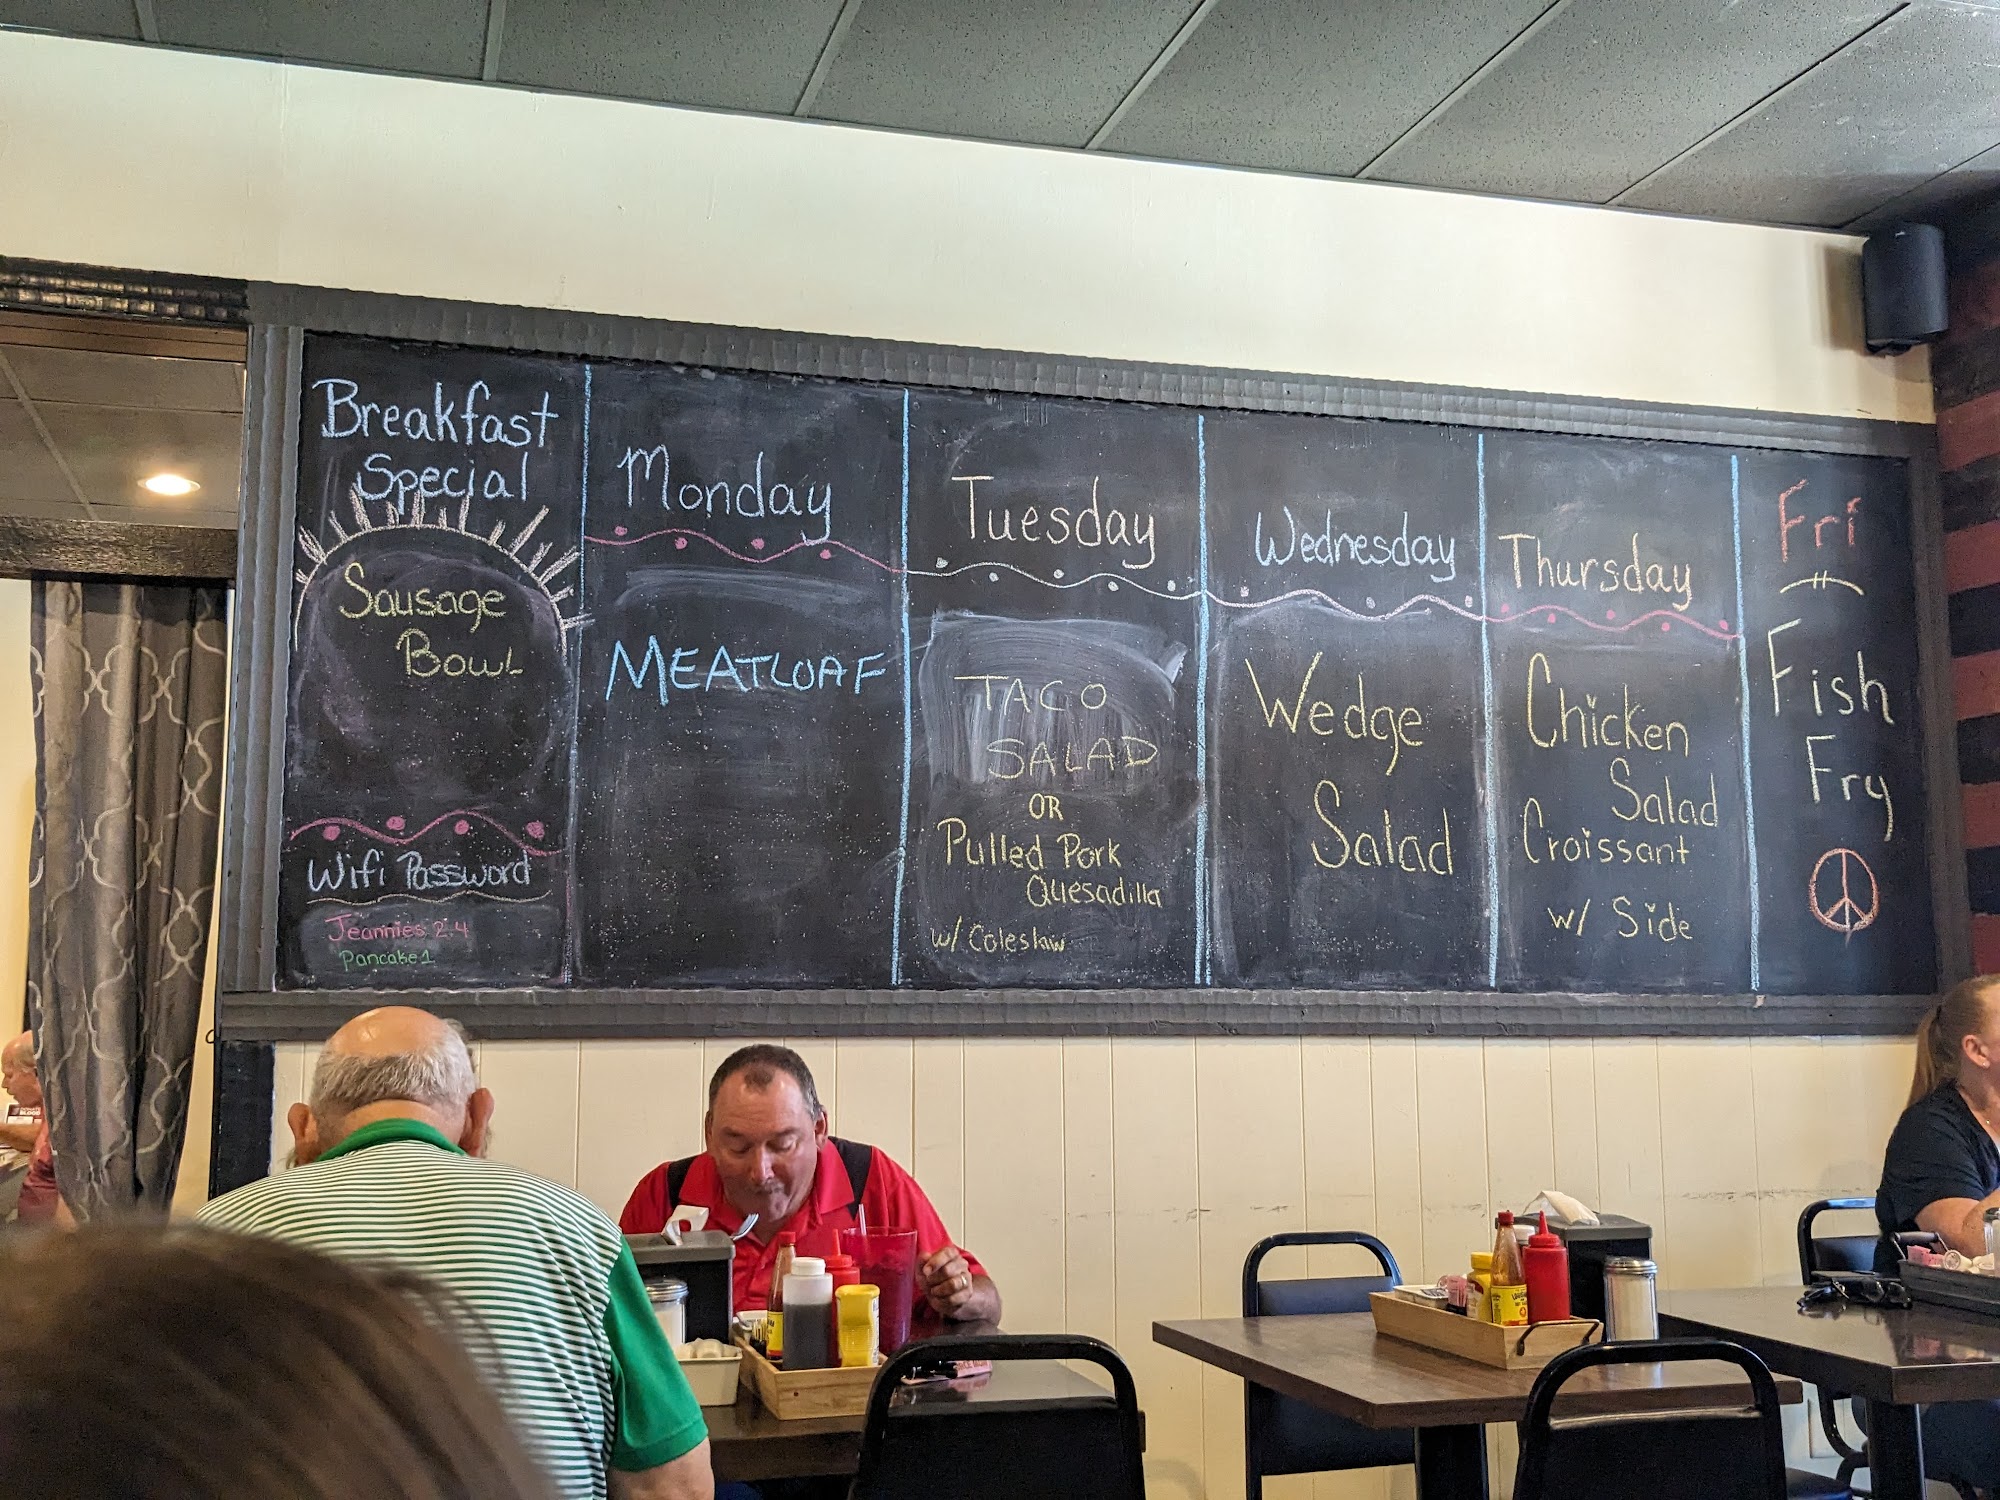 Breakfast
Special
Sausage
Bowl
Wifi Password
Jeannies 2.4
Pancake1
Monday
MEATLOAF
Tuesday
TACO
SALAD
OR
Pulled Pork
Quesadilla
w/ Coleslaw
Wednesday
Wedge
Salad
Thursday
Chicken
Salad
Croissant
w/ Side
Fri
Fish
Fry